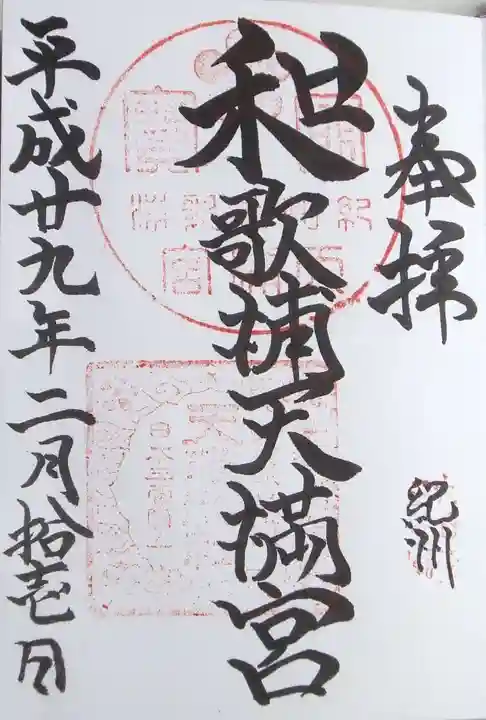 奉拝
紀州
和歌浦天満宮
平成廿九年二月拾壱日